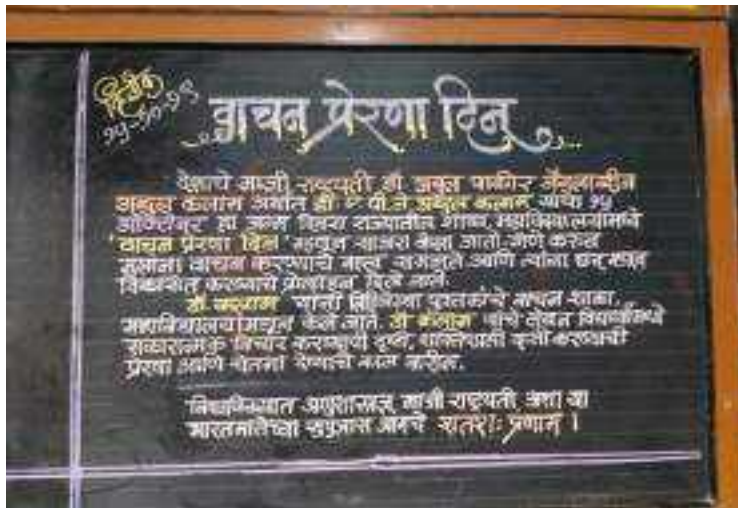 दिनांक
१५-१०-१९
वाचन प्रेरणा दिन
देशाचे माजी राष्ट्रपती डॉ अबुल पाकीर जैनुलाब्दीन
अब्दुल कलाम अर्थात डॉ ए पी जे अब्दुल कलाम यांचा १५
ऑक्टोबर हा जन्म दिवस राज्यातील शाळा, महाविद्यालयामध्ये
'वाचन प्रेरणा दिन' म्हणून साजरा केला जातो.
वाचन करण्याचे महत्व समजते आणि त्यांना
विकसित करण्याचे प्रोत्साहन दिले जाते.
डॉ. कलाम यांनी पुस्तकांचे वाचन शाळा,
महाविद्यालय मधून केले जाते. डॉ कलाम यांचे लेखन विद्यार्थ्यांमध्ये
सकारात्मक विचार करण्याची दृष्टी, कृती करण्याची
प्रेरणा आणि चेतना देण्याचे काम करील.
अणुशास्त्रज्ञ, माजी राष्ट्रपती, अशा या
भारतमातेच्या सुपुत्रास आमचे शतशः प्रणाम ।